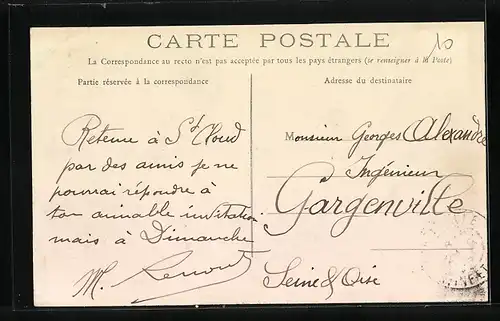 CARTE POSTALE
10
La Correspondance au recto n'est pas acceptée par tous les pays étrangers (se renseigner à la Poste)
Partie réservée à la correspondance
Adresse du destinataire
Retenue à St Cloud
par des amis je ne
pourrai répondre à
ton aimable invitation
mais à Dimanche
M.
Monsieur Georges Alexandre
Ingénieur
Gargenville
Seine & Oise